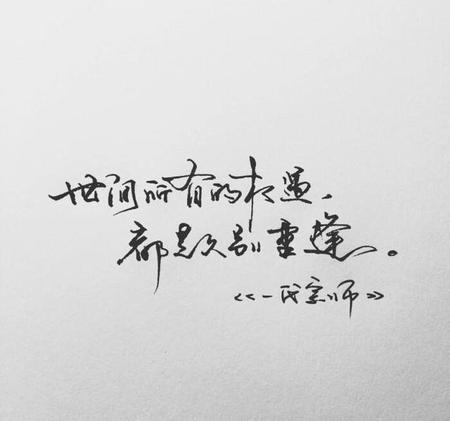 世间所有的相遇、
都是久别重逢。
《一代宗师》